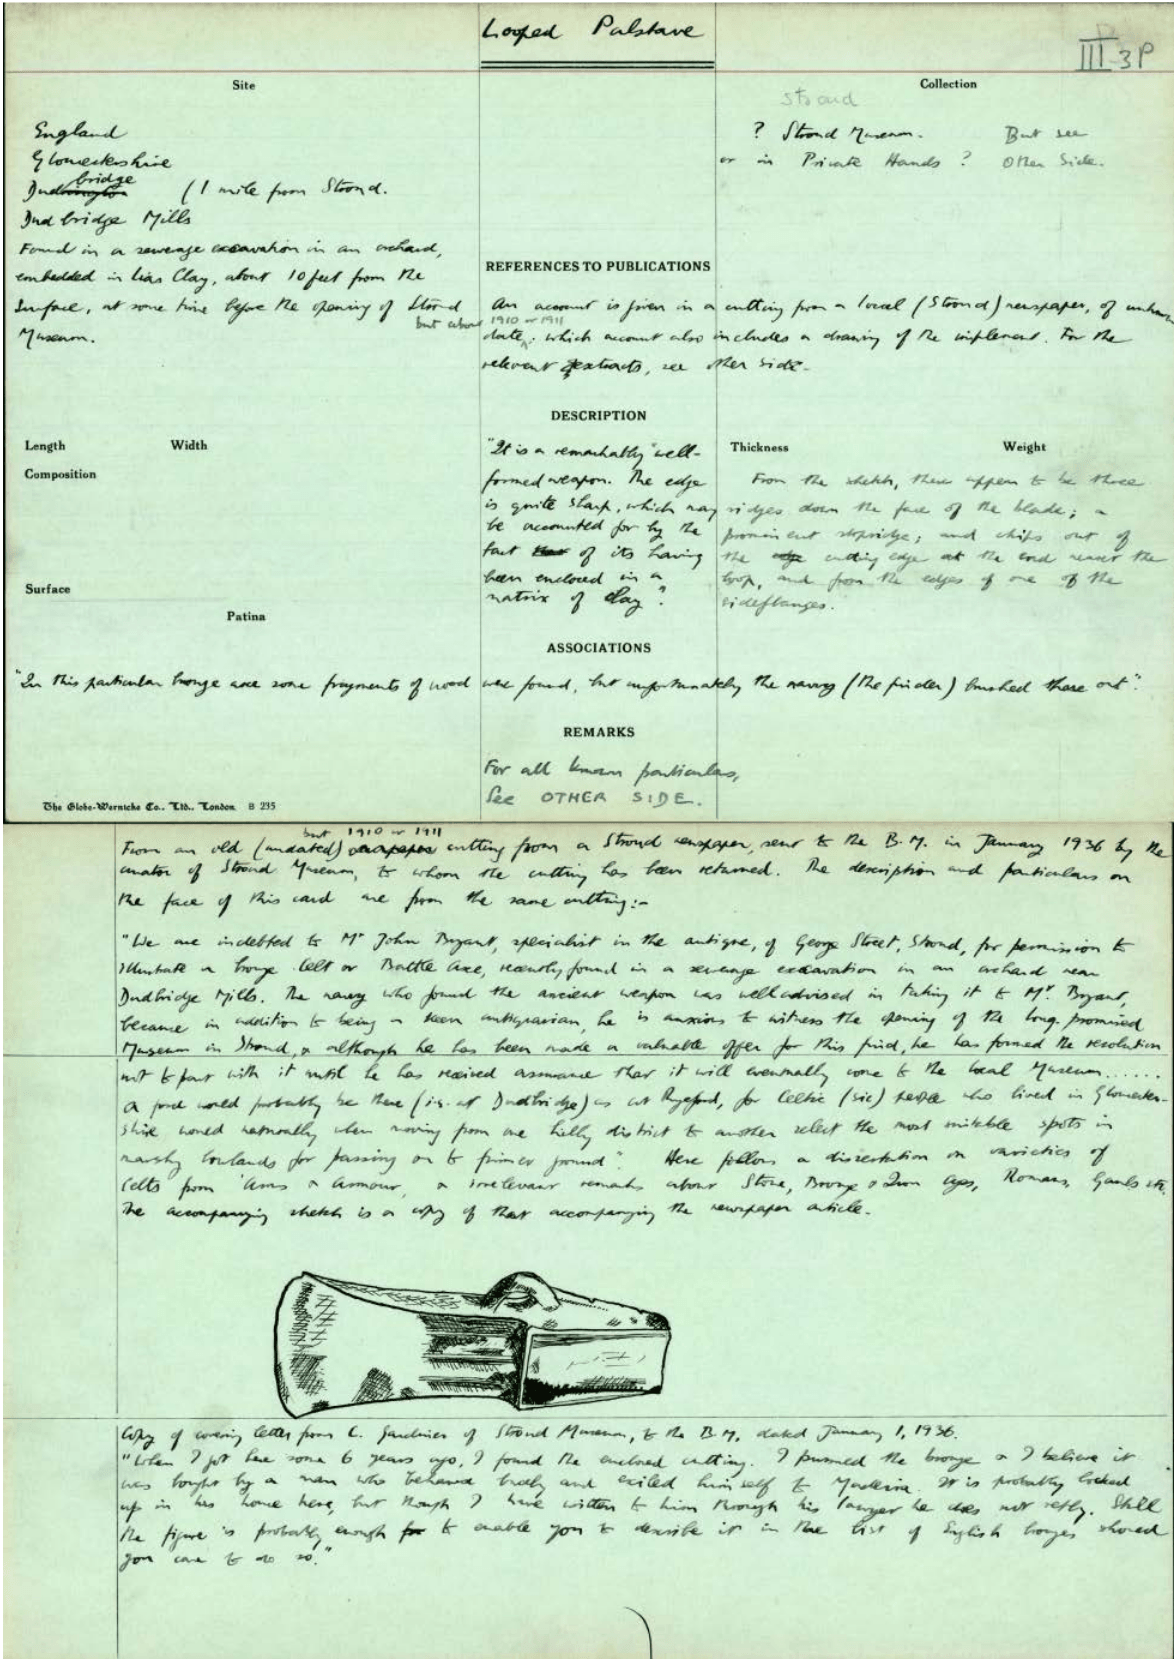 Looped Palstave
III 3P
Site
England
Gloucestershire
bridge
Dudbrington (1 mile from Stroud.
Dudbridge Mills
Found in a sewerage excavation in an orchard,
embedded in Lias Clay, about 10 feet from the
Surface, at some time before the opening of Stroud
but about 1910 or 1911
Museum.
Collection
Stroud
? Stroud Museum. But see
or in Private Hands? Other Side.
REFERENCES TO PUBLICATIONS
An account is given in a cutting from a local (Stroud) newspaper, of unknown
date; which account also includes a drawing of the implement. For the
relevant extracts, see other side.
DESCRIPTION
Length Width
Composition
Surface
Patina
"It is a remarkably well-
formed weapon. The edge
is quite sharp, which may
be accounted for by the
fact of its having
been enclosed in a
matrix of clay".
Thickness Weight
From the sketch, there appear to be three
ridges down the face of the blade; a
prominent stopridge; and chips out of
the edge cutting edge at the end nearer the
loop, and from the edges of one of the
sideflanges.
ASSOCIATIONS
"In this particular bronze axe some fragments of wood were found, but unfortunately the navvy (the finder) brushed these out".
REMARKS
For all known particulars,
See OTHER SIDE.
The Globe-Wernicke Co., Ltd., London. B 235
but 1910 or 1911
From an old (undated) newspaper cutting from a Stroud newspaper, sent to the B.M. in January 1936 by the
curator of Stroud Museum, to whom the cutting has been returned. The description and particulars on
the face of this card are from the same cutting:-
"We are indebted to Mr John Bryant, specialist in the antique, of George Street, Stroud, for permission to
illustrate a bronze Celt or Battle Axe, recently found in a sewerage excavation in an orchard near
Dudbridge Mills. The navvy who found the ancient weapon was well advised in taking it to Mr. Bryant,
because in addition to being a keen antiquarian, he is anxious to witness the opening of the long-promised
Museum in Stroud, & although he has been made a valuable offer for this find, he has formed the resolution
not to part with it until he has received assurance that it will eventually come to the local Museum......
A ford would probably be there (i.e. at Dudbridge) as at Ryeford, for Celtic (sic) people who lived in Gloucester-
shire would naturally when moving from one hilly district to another select the most suitable spots in
marshy lowlands for passing on to firmer ground". Here follows a dissertation on varieties of
Celts from 'Arms & Armour', & irrelevant remarks about Stone, Bronze & Iron Ages, Romans, Gauls etc.
The accompanying sketch is a copy of that accompanying the newspaper article.
Copy of covering letter from C. Gardiner of Stroud Museum, to the B.M. dated January 1, 1936.
"When I got here some 6 years ago, I found the enclosed cutting. I pursued the bronze & I believe it
was bought by a man who behaved badly and exiled himself to Madeira. It is probably locked
up in his house here, but though I have written to him through his lawyer he does not reply. Still
the figure is probably enough for to enable you to describe it in the list of English bronzes should
you care to do so."